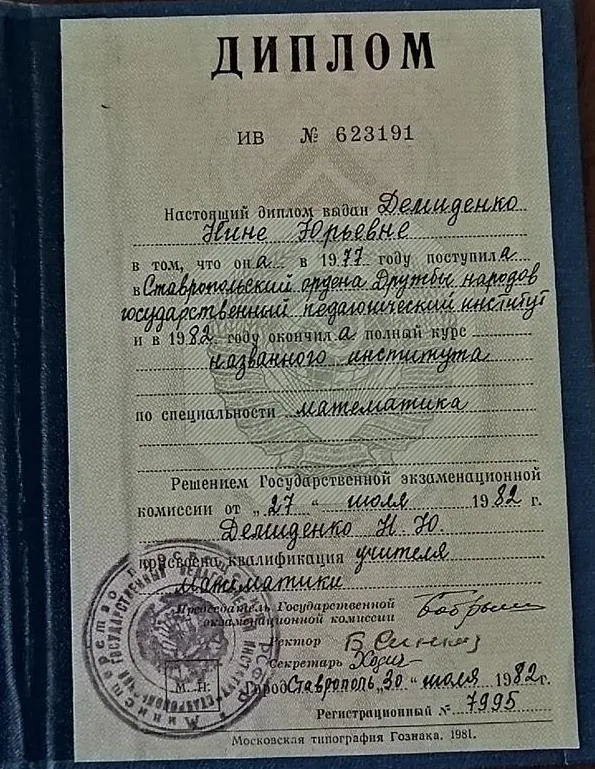 ДИПЛОМ
ИВ № 623191
Настоящий диплом выдан Демиденко
Нине Юрьевне
в том, что она в 1977 году поступила
в Ставропольский ордена Дружбы народов
государственный педагогический институт
и в 1982 году окончила полный курс
названного института
по специальности математика
Решением Государственной экзаменационной
комиссии от „27“ июля 1982 г.
Демиденко Н. Ю.
присвоена квалификация учителя
математики
Председатель Государственной
экзаменационной комиссии
Ректор
Секретарь
М. П.
Город Ставрополь „30“ июля 1982 г.
Регистрационный № 7995
Московская типография Гознака, 1981.